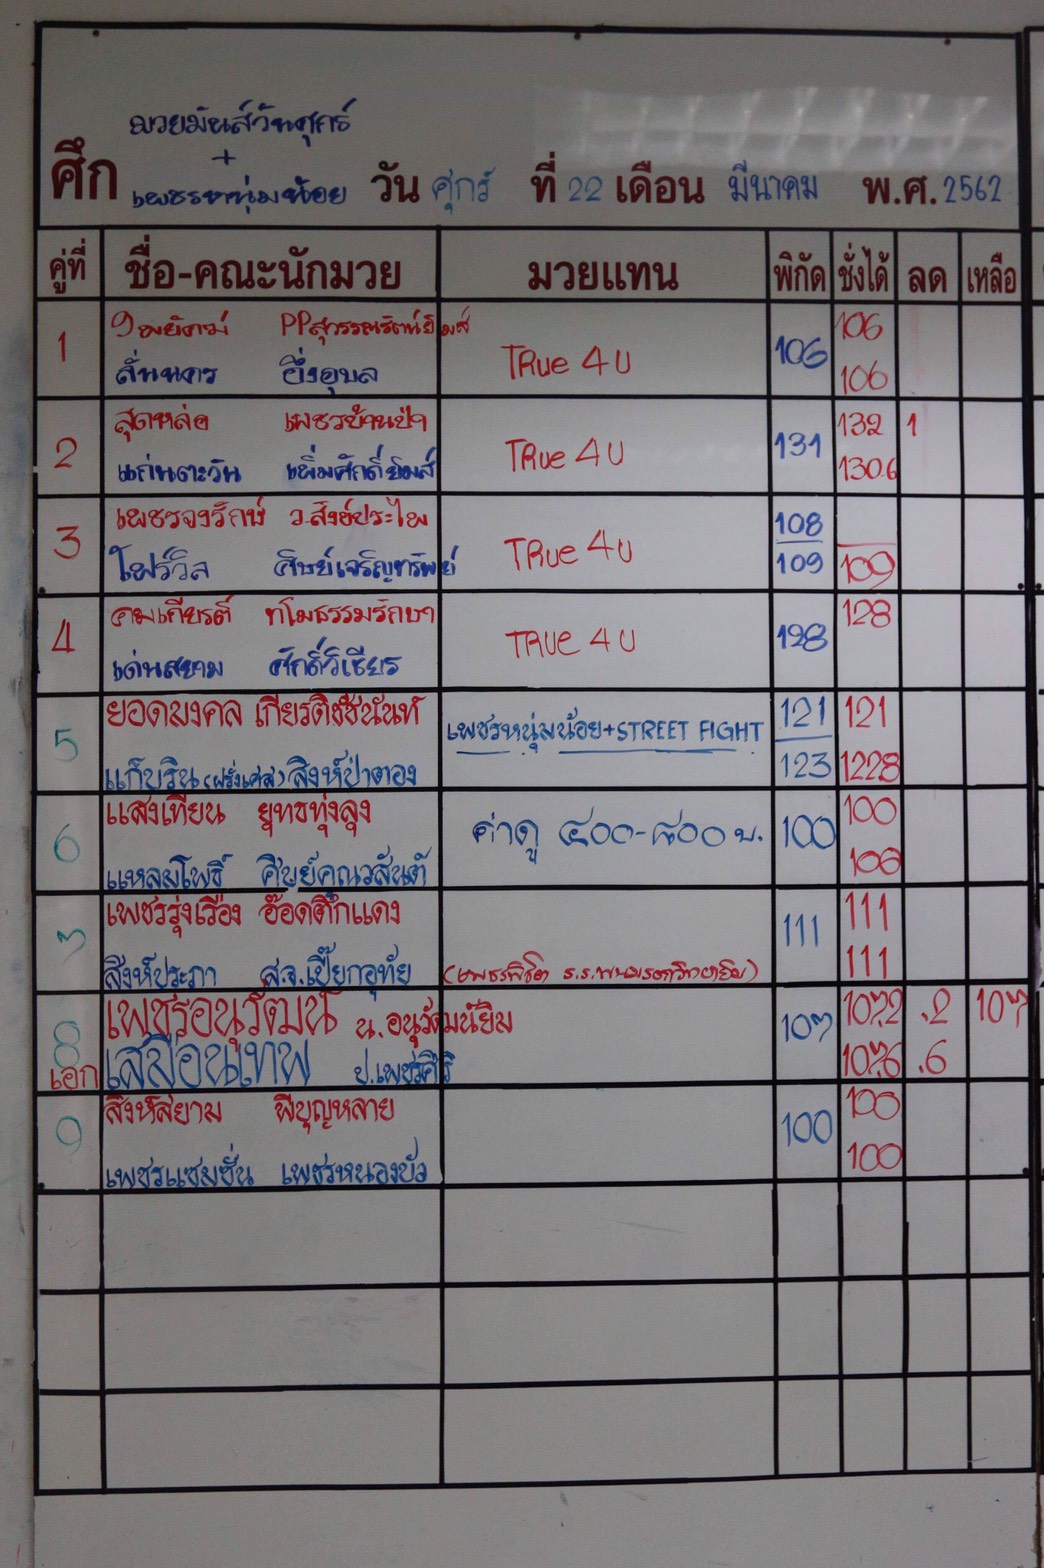 มวยมันส์วันศุกร์
+
ศึก เพชรหนุ่มน้อย วัน ศุกร์ ที่ 22 เดือน มีนาคม พ.ศ. 2562
คู่ที่ ชื่อ-คณะนักมวย มวยแทน พิกัด ชั่งได้ ลด เหลือ
PPสุวรรณรัตน์ยิมส์ 106
1 TRUe 4U 106
อึ่งอุบล 106
สุดหล่อ เพชรบ้านป่า 132 1
2 TRUe 4U 131
แก่นตะวัน เพิ่มศักดิ์ยิมส์ 130.6
เพชรจงรักษ์ ว.สังข์ประไพ 108
3 TRUe 4U
โฟร์วิล ศิษย์เจริญทรัพย์ 109 109
คมเกียรติ ท โมธรรมรักษา 128
4 TRUE 4U 128
เด่นสยาม ศักดิ์วิเชียร
ยอดมงคล เกียรติชัชนันท์ 121 121
5 เพชรหนุ่มน้อย+STREET FIGHT
แก็บริน (ฝรั่งเศส) สิงห์ป่าตอง 123 122.8
แสงเทียน ยุทธทุ่งลุง 100
6 ค่าดู ๔๐๐-๘๐๐ บ. 100
แหลมโพธิ์ ศิษย์คุณวสันต์ 100
เพชรรุ่งเรือง อ๊อดตึกแดง 111
7 111
สิงห์ประภา ส.จ.เปี๊ยกอุทัย (เพชรพิชิต ร.ร.พนมเรตวิทยาฉิม) 111
เพชรอนุวัฒน์ น.อนุวัฒน์ยิม 107.2 .2 107
8 107
เอก เสมือนเทพ ป.เพชรศิริ 107.6 .6
สิงห์สยาม ผีบุญหลาย 100
9 100
เพชรแชมชื่น เพชรหนองบัว 100